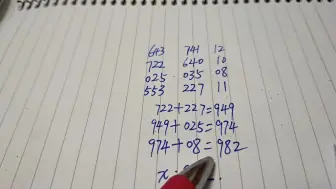 643 741 12
722 640 10
025 035 08
553 227 11
722+227=949
949+025=974
974+08=982
x